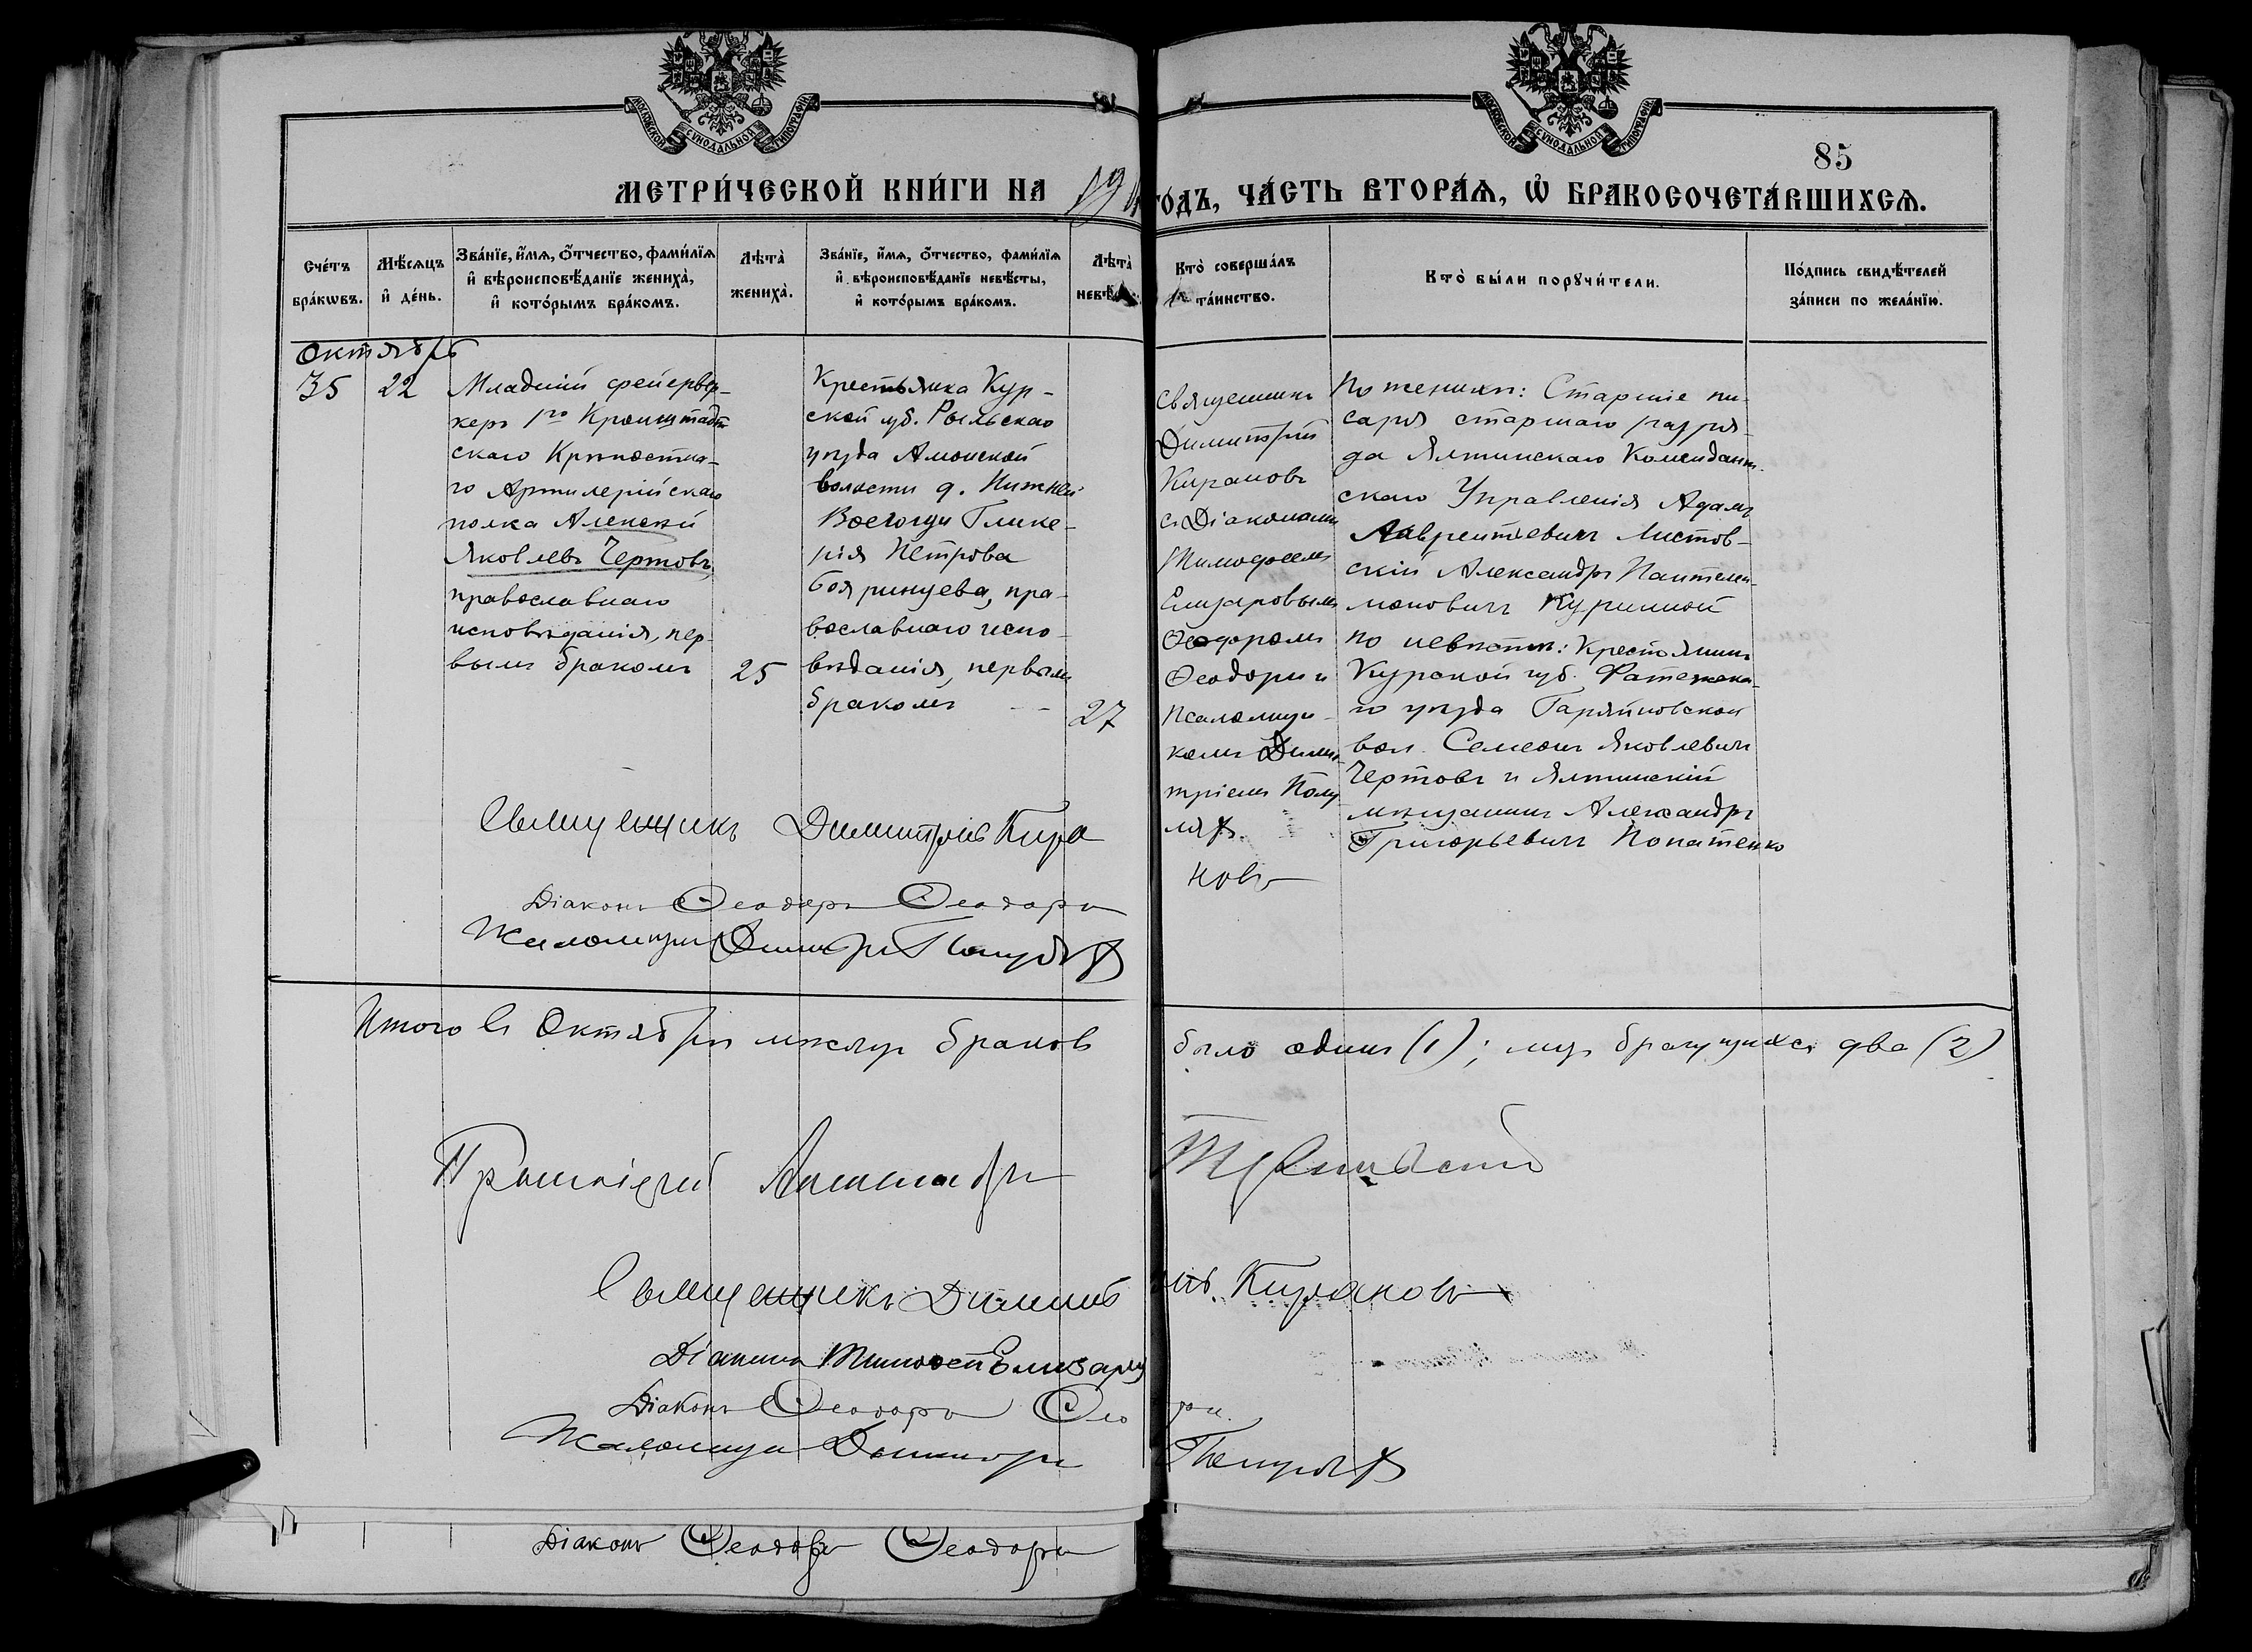 МОСКОВСКОЙ СУНОДАЛЬНОЙ ТИПОГРАФІИ
МОСКОВСКОЙ СУНОДАЛЬНОЙ ТИПОГРАФІИ
85
МЕТРИ́ЧЕСКОЙ КНИ́ГИ НА 19
ГОДЪ, ЧА́СТЬ ВТОРА́Я, Ѡ БРАКОСОЧЕТА́ВШИХСЯ.
Сче́тъ бра́кѡвъ.
Мѣ́сяцъ и҆ де́нь.
Зва́нїе, и҆́мя, ѻ҆́тчество, фами́лїя
и҆ вѣроисповѣ́данїе жениха̀,
и҆ кото́рымъ бра́комъ.
Лѣта̀ жениха̀.
Зва́нїе, и҆́мя, ѻ҆́тчество, фами́лїя
и҆ вѣроисповѣ́данїе невѣ́сты,
и҆ кото́рымъ бра́комъ.
Лѣта̀
Кто̀ соверша́лъ
та́инство.
Кто̀ бы́ли порꙋчи́тели.
По́дпись свидѣ́телей
за́писи по жела́нїю.
Октябрь
35
22
Младшій фейервер-
керъ 1го Кронштадт
скаго Крѣпостна-
го Артилерійскаго
полка Алексѣй
Яковлевъ Чертовъ,
православнаго
исповѣданія, пер-
вымъ бракомъ
25
Крестьянка Кур-
ской губ. Рыльскаго
уѣзда Амонской
волости д. Нижней
Глике-
рія Петрова
Бояринцева, пра-
вославнаго испо-
вѣданія, первымъ
бракомъ
27
Священникъ
Димитрій
Кирановъ
съ Діаконами
Тимофеемъ
Елизаровымъ
Ѳеодоромъ
Ѳеодори и
псаломщи-
комъ Дими-
тріемъ
По женихѣ: Старшіе пи-
саря старшаго разря-
да Ялтинскаго Комендант-
скаго Управленія Адамъ
Лаврентьевичъ Листов-
скій Александръ Пантелей-
моновичъ Куринной
по невѣстѣ: Крестьянинъ
Курской губ. Фатежска-
го уѣзда
вол. Семеонъ Яковлевичъ
Чертовъ и Ялтинскій
мѣщанинъ Александръ
Григорьевичъ Попатенко
Священникъ Димитрій Кира
новъ
Діаконъ Ѳеодоръ Ѳеодори
Псаломщикъ Димитрій
Итого въ Октябрѣ мѣсяцѣ браковъ было одинъ (1); лицъ брачущихся два (2)
Протоіерей Александръ Терновскій
Священникъ Димитрій Кирановъ
Діаконъ Тимофей Елизаровъ
Діаконъ Ѳеодоръ Ѳеодори
Псаломщикъ Димитрій
Діаконъ Ѳеодоръ Ѳеодори